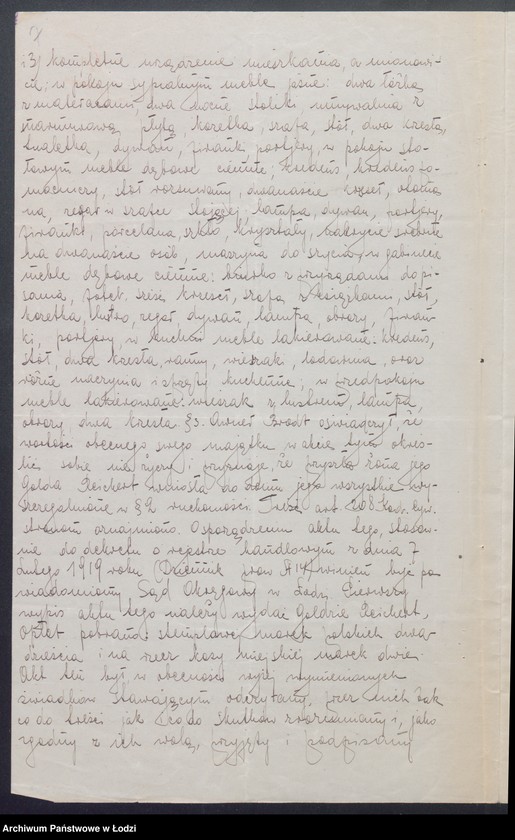 i 3/ kompletne urządzenie mieszkania, a mianowi-
cie: w pokoju sypialnym meble jasne: dwa łóżka
z materacami, dwa nocne stoliki umywalnia z
marmurową płytą, kozetka, szafa, stół, dwa krzesła,
tualetka, dywan, firanki portjery, w pokoju sto-
łowym meble dębowe ciemne; kredens, kredens po-
mocniczy, stół rozsuwany, dwanaście krzeseł, otoma
na, zegar w szafce stojącej, lampa, dywan, portjery,
firanki, porcelana, szkło, kryształy, nakrycie srebrne
na dwanaście osób, maszyna do szycia, w gabinecie
meble dębowe ciemne: biurko z przyrządami do pi-
sania, fotel, sześć krzeseł, szafa z książkami, stół,
kozetka, lustro, zegar, dywan, lampa, obrazy, firan-
ki, portjery, w kuchni meble lakierowane: kredens,
stół, dwa krzesła, wanny, wieszaki, lodownia, oraz
różne naczynia i sprzęty kuchenne; w przedpokoju
meble lakierowane: wieszak z lustrem, lampa,
obrazy dwa krzesła. §3. Brodt oświadczył, że
wartości obecnego swego majątku w akcie tym okreś-
lić sobie nie życzy i przyznaje, że przyszła żona jego
Golda Reichert wniosła do domu jego wszystkie wy-
szczególnione w §2 ruchomości. Treść art. 208 Kod. Cyw.
stronom oznajmiono. O sporządzeniu aktu tego, stosow-
nie do dekretu o rejestrze handlowym z dnia 7
Lutego 1919 roku (Dziennik praw № 14) winien być po
wiadomiony Sąd Okręgowy w Łodzi. Pierwszy
wypis aktu tego należy wydać Goldzie Reichert,
Opłat pobrano: stemplowej marek polskich dwa-
dzieścia i na rzecz kasy miejskiej marek dwie.
Akt ten był, w obecności wyżej wymienionych
świadków stawającym odczytany, przez nich tak
co do treści jak i co do skutków zrozumiany i, jako
zgodny z ich wolą, przyjęty i podpisany
Archiwum Państwowe w Łodzi